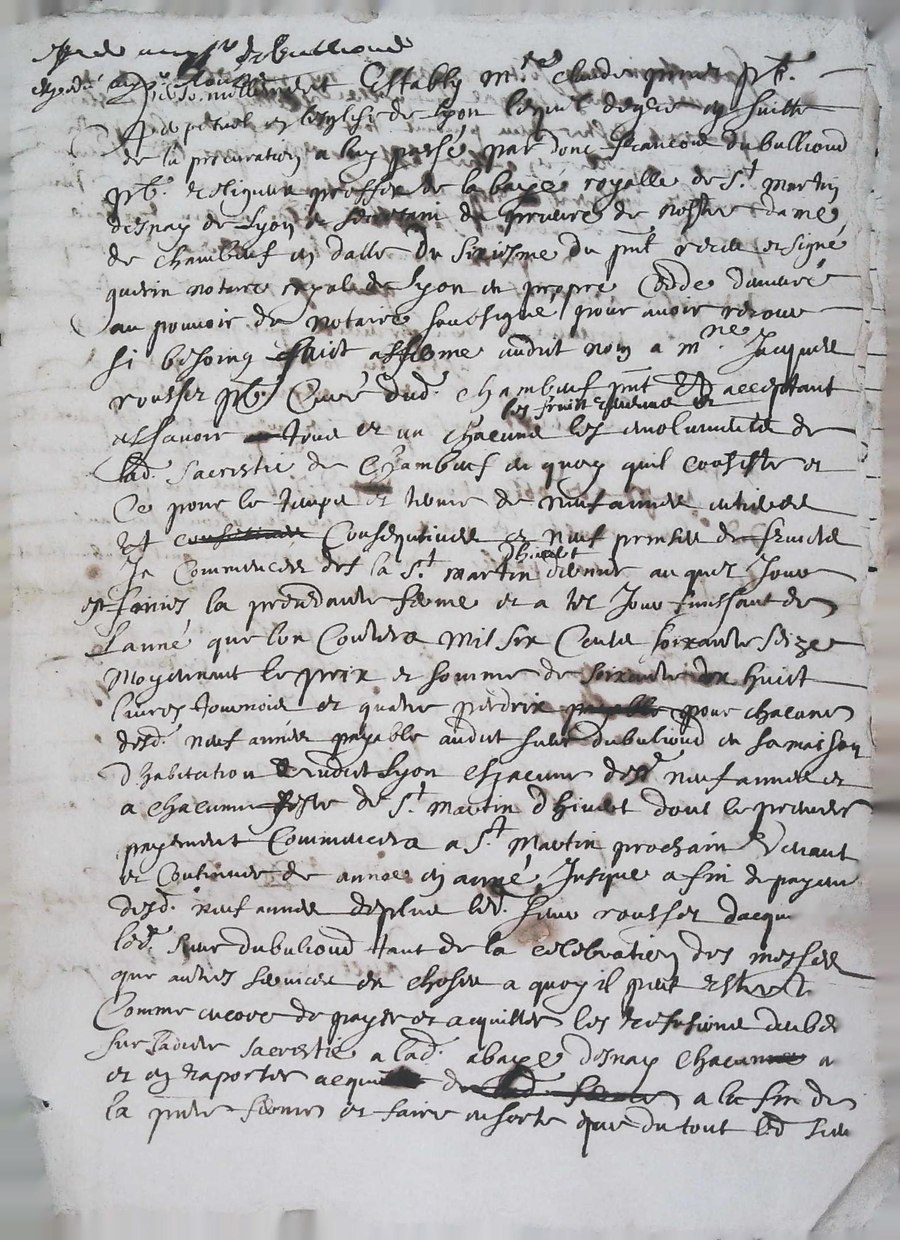 dubullioud
Estably mre Claude prb.
perpetuel en leglise de lyon lequel de gre en suitte
de la procuration a luy passé par donc francois dubullioud
prb. religieux proffex de la baye royalle de St. martin
desnay de Lyon et secretain du prieure de nostre dame
de chambeuf en datte du sixiesme du pnt receu et signé
guerin notaire royal de lyon en propre
au pouvoir du notaire soussigné pour avoir recours
si besoing faict afferme audit nom a mre. Jacques
rousset prb. Curé dud. chambeuf pnt et acceptant
les fruits revenus et
assavoir tous et un chacuns les emolumentz de
lad. sacrestie de Chambeuf en quoy quil consiste et
Ce pour le temps et terme de neuf annees entieres
et consecutives Consequtives et neuf prinses de fruictz
dhivert
Ja Commences des la St. martin dernier auquel Jour
est finies la precedante ferme et a tel Jour finissant de
Lanné que lon Contera Mil six Centz soixante seize
Moyennant le prix et somme de soixante huict
livres tournois et quatre perdrix payable pour chacune
desd. neuf annees payable audit sieur dubulioud en sa maison
d'habitation audit Lyon chacune desd. neuf annees et
a chacune feste de St. martin d'hivert dont le premier
payement Commencera a St. Martin prochain venant
et Continuer de annee en anné Jusque a fin de payem
desd. neuf annees desplus led. sieur rousset dacqu
led. sieur dubulioud tant de la celebration des messes
que autres services et choses a quoy il peut estre
Comme encore de payer et acquitter les deubz
sur ladite sacrestie a lad. abaye desnay chacune a
et en raporter acquit de lad. ferme a la fin de
la pnte ferme et faire en sorte que du tout led sieu